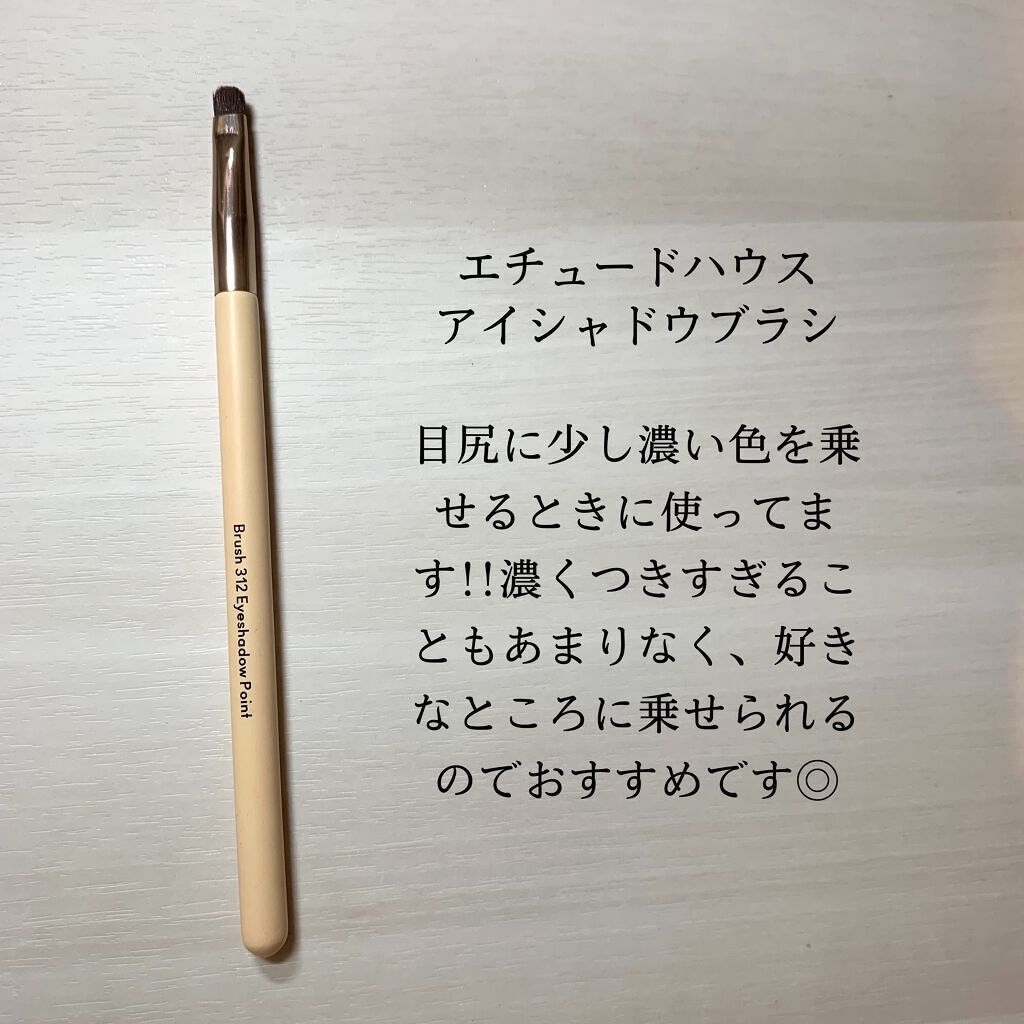 エチュードハウス
アイシャドウブラシ
目尻に少し濃い色を乗
せるときに使ってま
す!!濃くつきすぎるこ
ともあまりなく、好き
なところに乗せられる
のでおすすめです◎
Brush 312 Eyeshadow Point